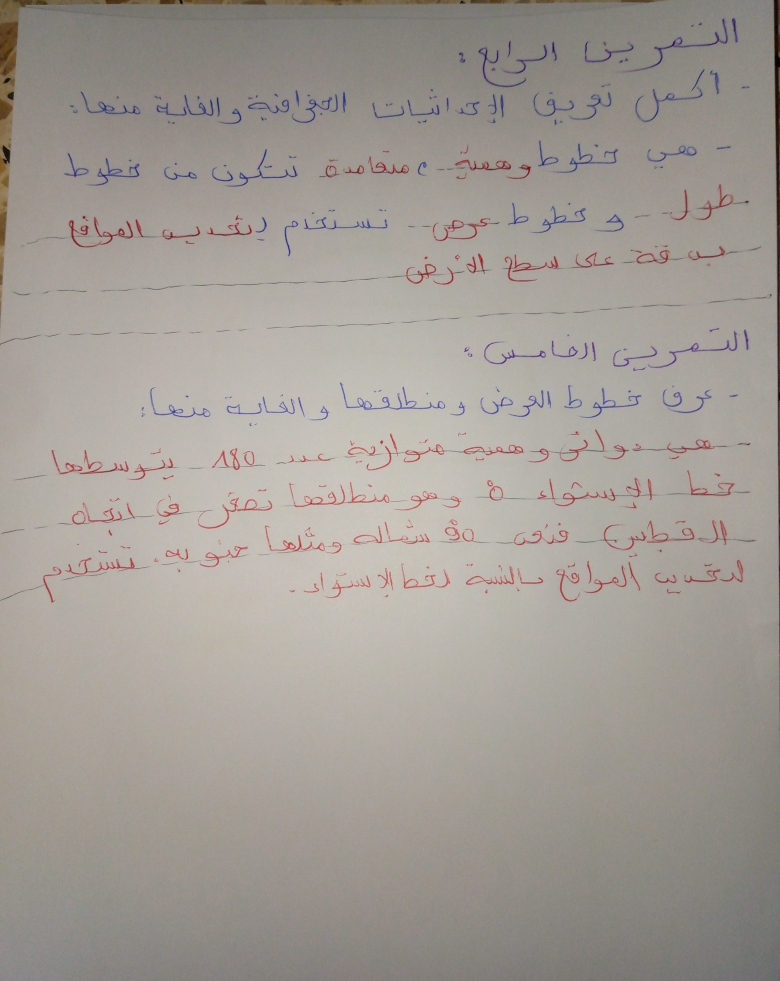 التمرين الرابع:
- أكمل تعريف الإحداثيات الجغرافية والغاية منها:
- هي خطوط وهمية، متقامدة تتكون من خطوط
طول -- و خطوط عرض -- تستخدم لتحديد المواقع
بدقة على سطح الأرض
التمرين الخامس:
- عرف خطوط العرض ومنطلقها والغاية منها:
- هي دوائر وهمية متوازية عدد 180 يتوسطها
خط الإستواء 0° وهو منطلقها تصغر في اتجاه
القطبين 90 شماله ومثلها جنوبه. تستخدم
لتحديد المواقع بالنسبة لخط الإستواء.